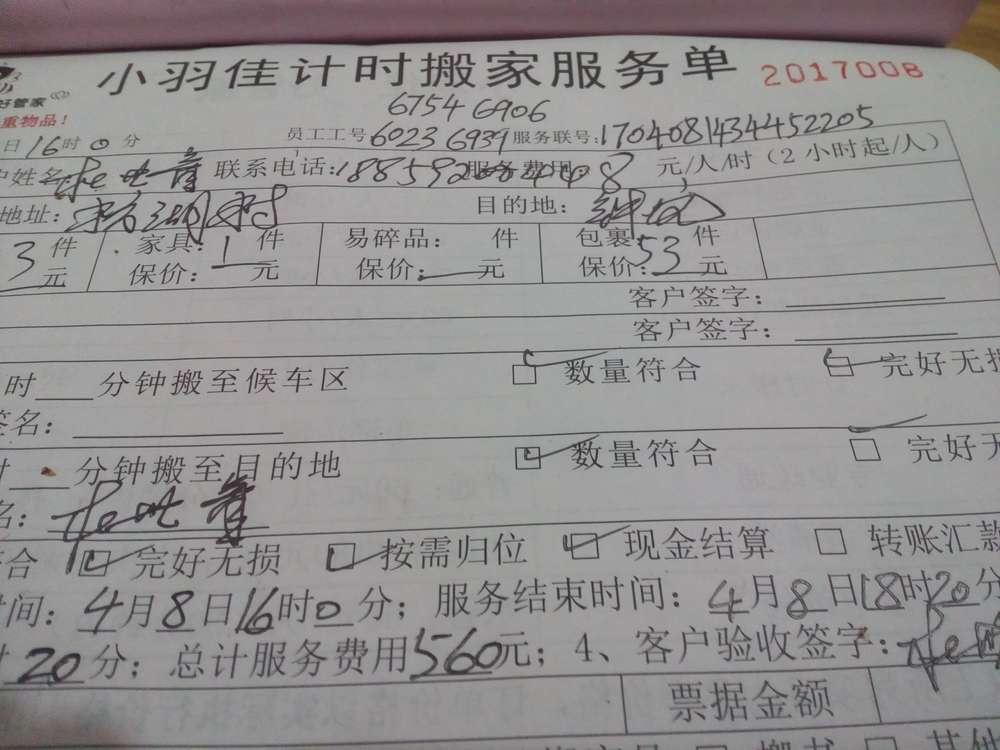 小羽佳计时搬家服务单 2017008
好管家
重物品!
67546906
日16时0分 员工工号 60236939 服务联号:1704081434452205
户姓名 联系电话:188592 服务费用:8 元/人/时(2小时起/人)
地址: 目的地:
3件 家具:1件 易碎品: 件 包裹53件
元 保价: 元 保价: 元 保价: 元
客户签字:
客户签字:
时 分钟搬至候车区 数量符合 完好无损
签名:
时 分钟搬至目的地 数量符合 完好无
名:
符合 完好无损 按需归位 现金结算 转账汇款
时间:4月8日16时0分;服务结束时间:4月8日18时20分
时20分;总计服务费用560元;4、客户验收签字:
票据金额
搬书 其他